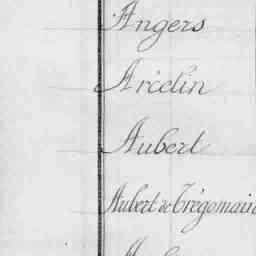 Angers
Arcelin
Aubert
Aubert de Trégomain